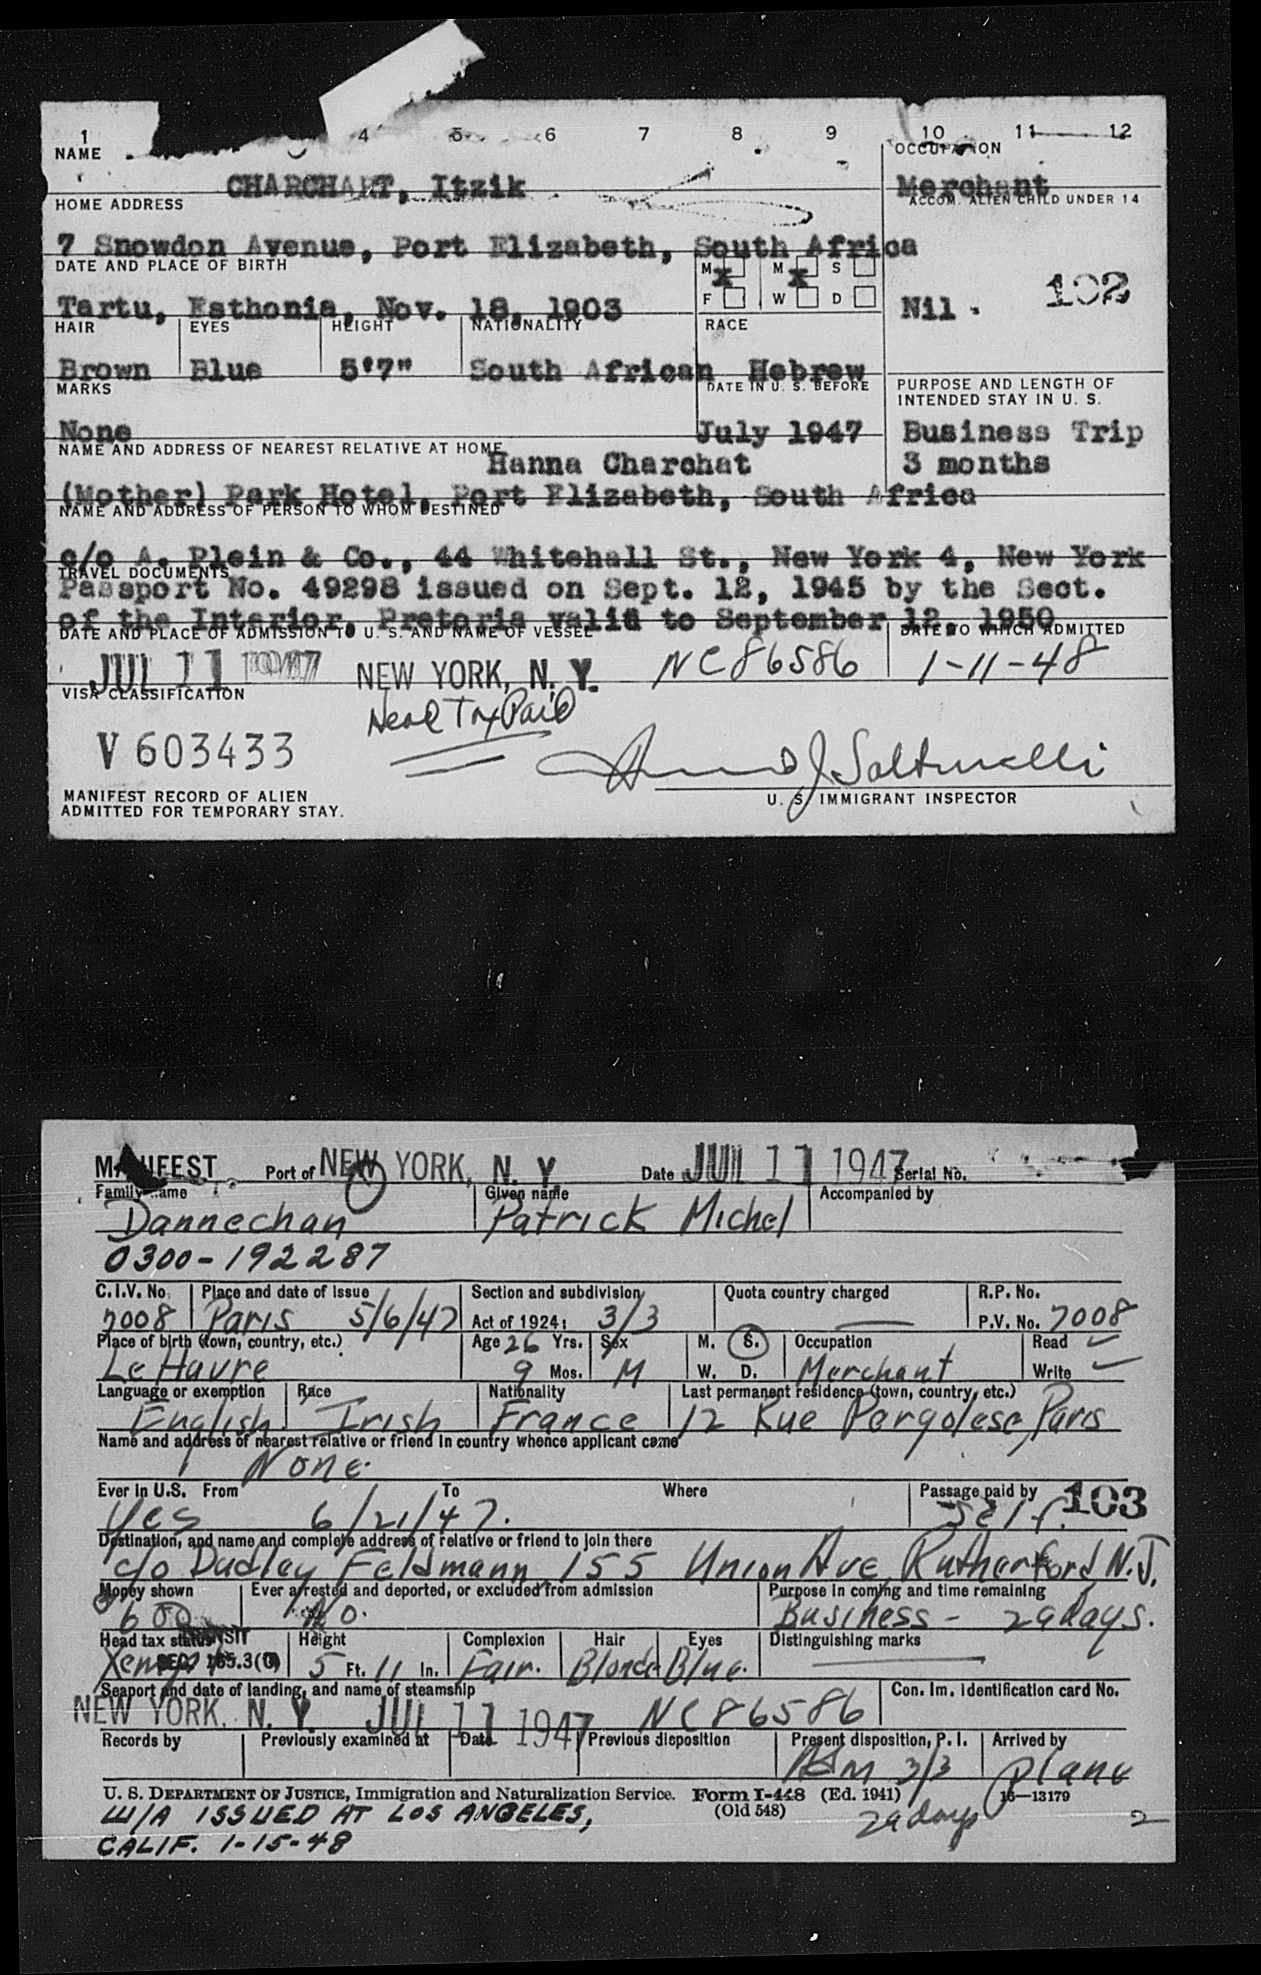 1 4 5 6 7 8 9 10 11 12
NAME OCCUPATION
CHARCHAT, Itzik Merchant
HOME ADDRESS ACCOM. ALIEN CHILD UNDER 14
7 Snowdon Avenue, Port Elizabeth, South Africa
DATE AND PLACE OF BIRTH M X M X S
F W D
Tartu, Esthonia, Nov. 18, 1903 Nil. 102
HAIR EYES HEIGHT NATIONALITY RACE
Brown Blue 5'7" South African Hebrew
MARKS DATE IN U. S. BEFORE PURPOSE AND LENGTH OF
INTENDED STAY IN U. S.
None July 1947 Business Trip
NAME AND ADDRESS OF NEAREST RELATIVE AT HOME
Hanna Charchat 3 months
(Mother) Park Hotel, Port Elizabeth, South Africa
NAME AND ADDRESS OF PERSON TO WHOM DESTINED
c/o A. Plein & Co., 44 Whitehall St., New York 4, New York
TRAVEL DOCUMENTS
Passport No. 49298 issued on Sept. 12, 1945 by the Sect.
of the Interior, Pretoria valid to September 12, 1950
DATE AND PLACE OF ADMISSION TO U. S. AND NAME OF VESSEL DATE TO WHICH ADMITTED
JUL 11 1947 NEW YORK, N. Y. NC86586 1-11-48
VISA CLASSIFICATION
Head Tax Paid
V 603433
MANIFEST RECORD OF ALIEN
ADMITTED FOR TEMPORARY STAY.
U. S. IMMIGRANT INSPECTOR
MANIFEST Port of NEW YORK, N. Y. Date JUL 11 1947 Serial No.
Family name Given name Accompanied by
Dannechan Patrick Michel
0300-192287
C.I.V. No. Place and date of issue Section and subdivision Quota country charged R.P. No.
7008 Paris 5/6/47 Act of 1924: 3/3 P.V. No. 7008
Place of birth (town, country, etc.) Age 26 Yrs. Sex M. S. Occupation Read
Le Havre 9 Mos. M W. D. Merchant Write
Language or exemption Race Nationality Last permanent residence (town, country, etc.)
English Irish France 12 Rue Pergolese, Paris
Name and address of nearest relative or friend in country whence applicant came
None.
Ever in U.S. From To Where Passage paid by 103
Yes 6/21/47. Self.
Destination, and name and complete address of relative or friend to join there
c/o Dudley Feldmann 155 Union Ave, Rutherford, N.J.
Money shown Ever arrested and deported, or excluded from admission Purpose in coming and time remaining
600 No. Business - 29 days.
Head tax status TRANSIT Height Complexion Hair Eyes Distinguishing marks
SEC. 105.3(G) 5 Ft. 11 In. Fair. Blonde Blue.
Seaport and date of landing, and name of steamship Con. Im. Identification card No.
NEW YORK, N. Y. JUL 11 1947 NC86586
Records by Previously examined at Date Previous disposition Present disposition, P. I. Arrived by
3/3 plane
U. S. DEPARTMENT OF JUSTICE, Immigration and Naturalization Service. Form I-448 (Ed. 1941) 16—13179
(Old 548) 29 days 2
W/A ISSUED AT LOS ANGELES,
CALIF. 1-15-48